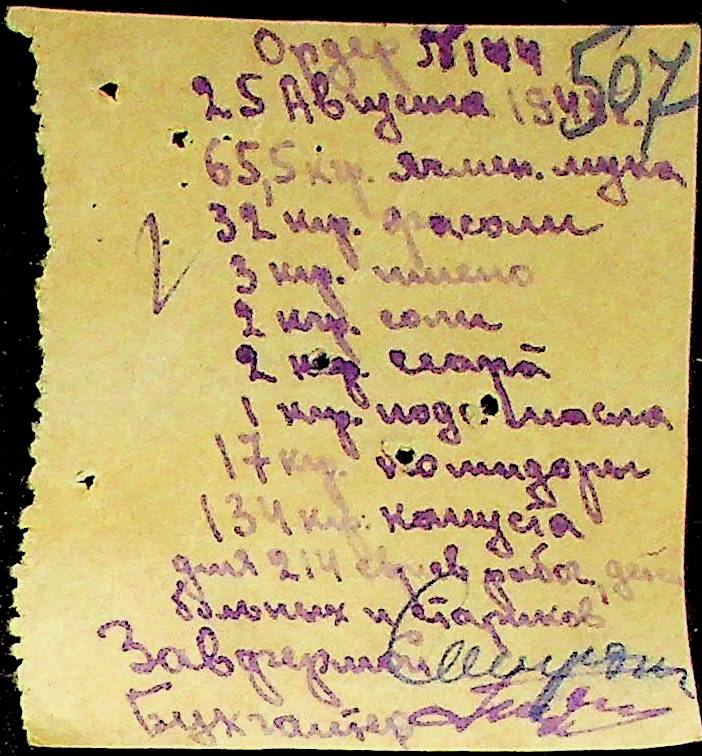 Ордер № 144
507
25 Августа 194
65,5 кгр. ячмен. мука
32 кгр. фасоли
3 кгр. пшено
2 кгр. соли
2 кгр.
1 кгр. подс. масла
17 кгр. Помидоры
134 кгр. капуста
для 214 евреев рабоч., детей
больных и стариков
Завфермой
Бухгалтер